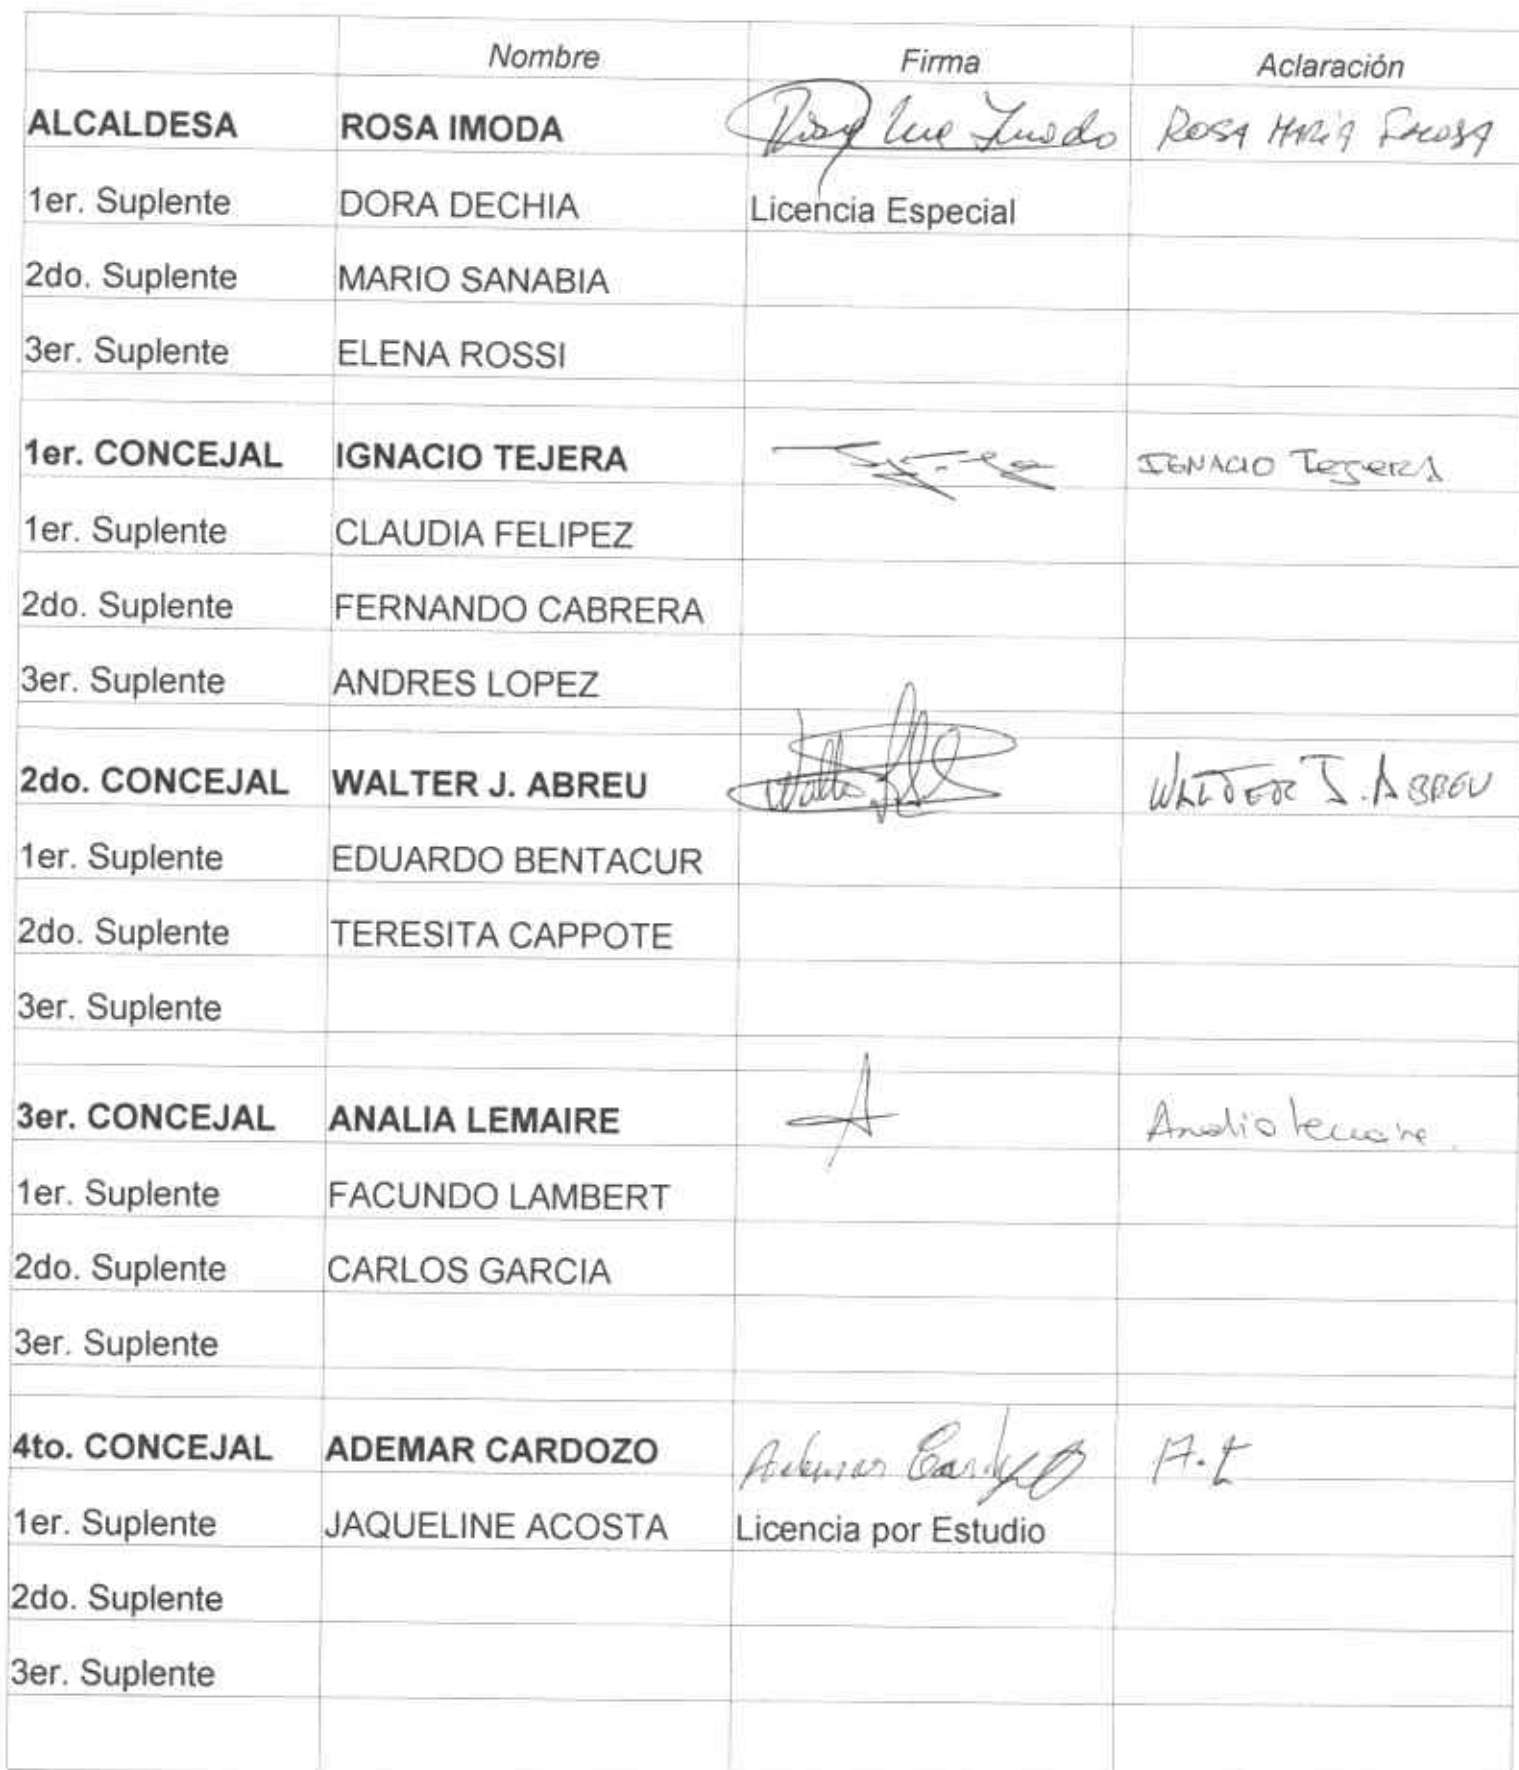 Nombre Firma Aclaración
ALCALDESA ROSA IMODA ROSA MARÍA
1er. Suplente DORA DECHIA Licencia Especial
2do. Suplente MARIO SANABIA
3er. Suplente ELENA ROSSI
1er. CONCEJAL IGNACIO TEJERA IGNACIO TEJERA
1er. Suplente CLAUDIA FELIPEZ
2do. Suplente FERNANDO CABRERA
3er. Suplente ANDRES LOPEZ
2do. CONCEJAL WALTER J. ABREU Walter WALTER J. ABREU
1er. Suplente EDUARDO BENTACUR
2do. Suplente TERESITA CAPPOTE
3er. Suplente
3er. CONCEJAL ANALIA LEMAIRE A Analia Lemaire
1er. Suplente FACUNDO LAMBERT
2do. Suplente CARLOS GARCIA
3er. Suplente
4to. CONCEJAL ADEMAR CARDOZO Ademar Cardozo
1er. Suplente JAQUELINE ACOSTA Licencia por Estudio
2do. Suplente
3er. Suplente